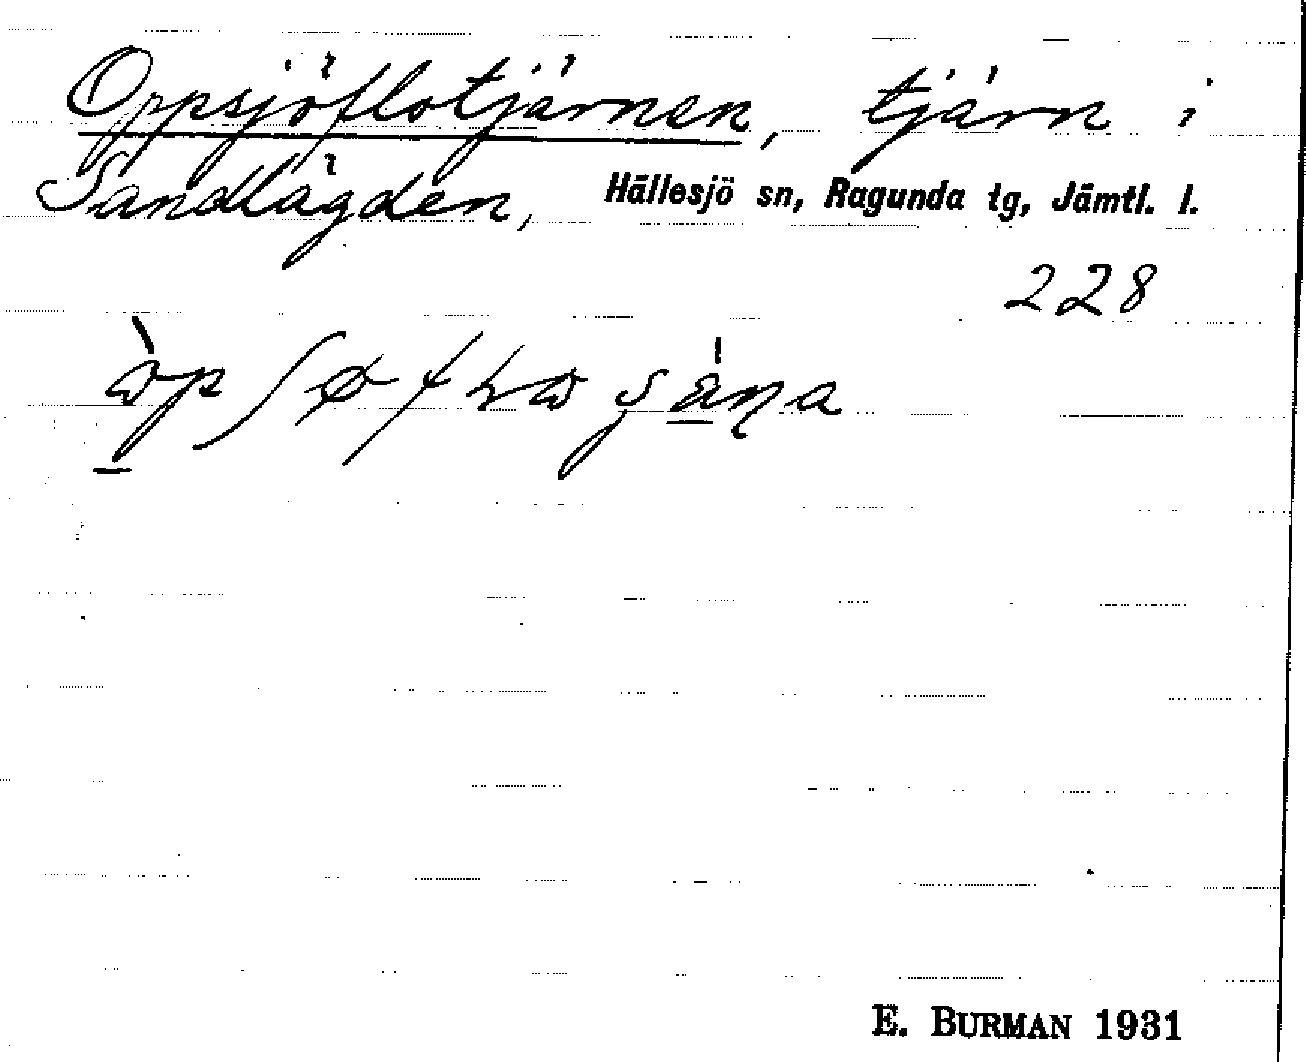 Oppsjöflotjärnen, tjärn i
Sandlägden, Hällesjö sn, Ragunda tg, Jämtl. l.
228
E. BURMAN 1931